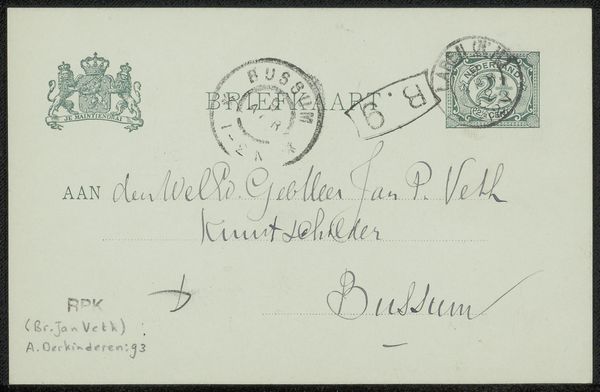 BRIEFKAART
JE MAINTIENDRAI
BUSSUM
APR
1-2 N
B.9
NEDERLAND
2½
AAN den WelEd. Geb Heer Jan P. Veth
Kunstschilder
Bussum
RPK
(Br. Jan Veth)
A. Derkinderen: 93